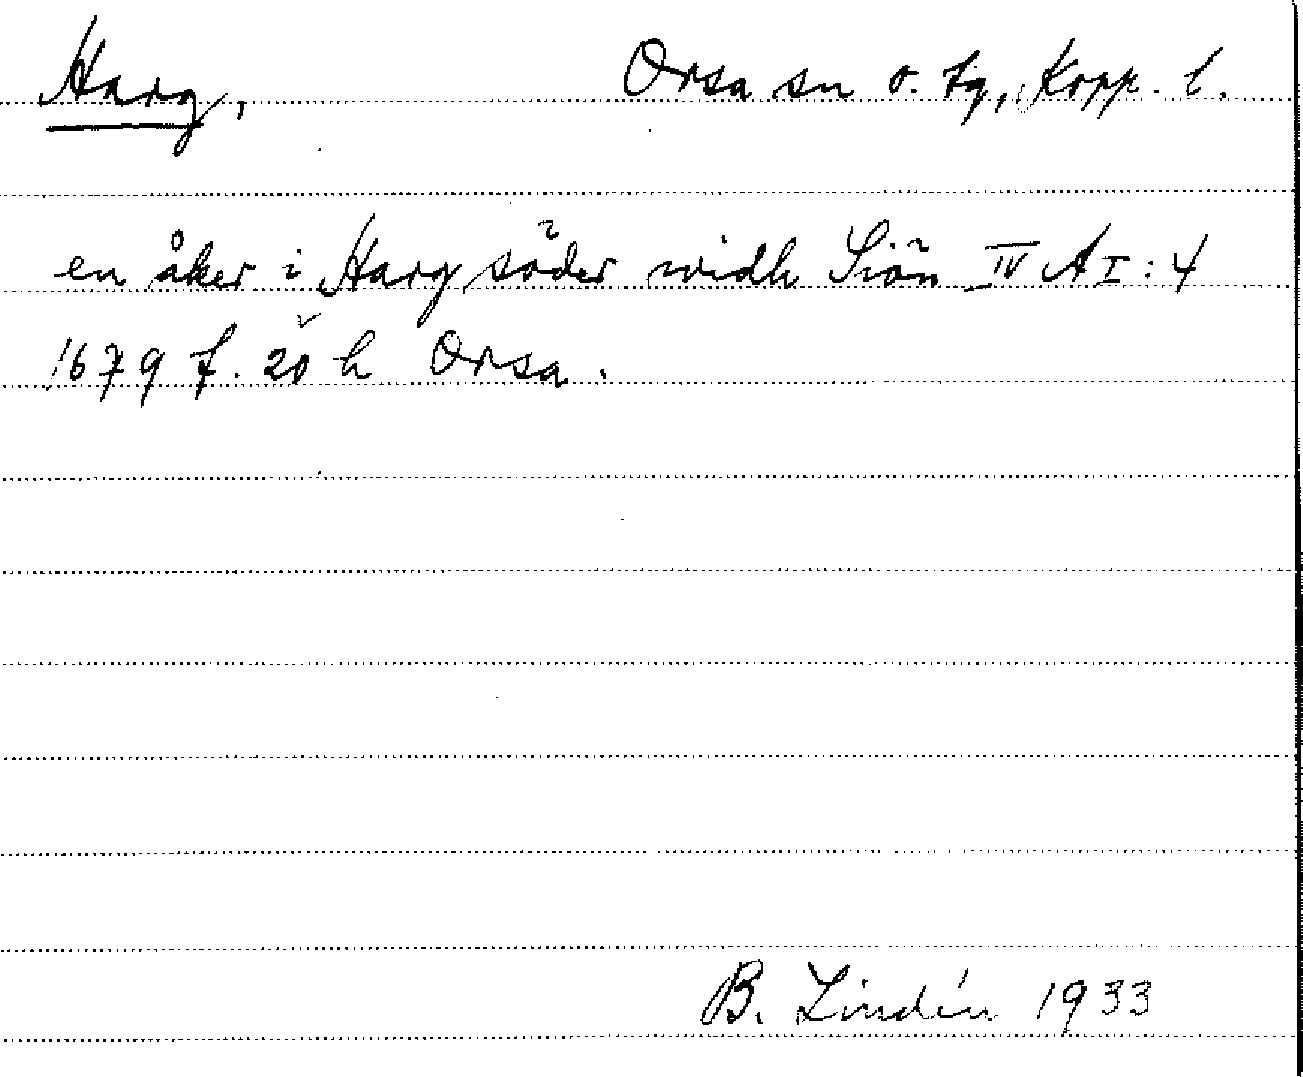 Harg, Orsa sn o. tg, Kopp. l.
en åker i Harg söder widh Siön IV A I : 4
1679 f. 20 h Orsa.
B. Lindén 1933